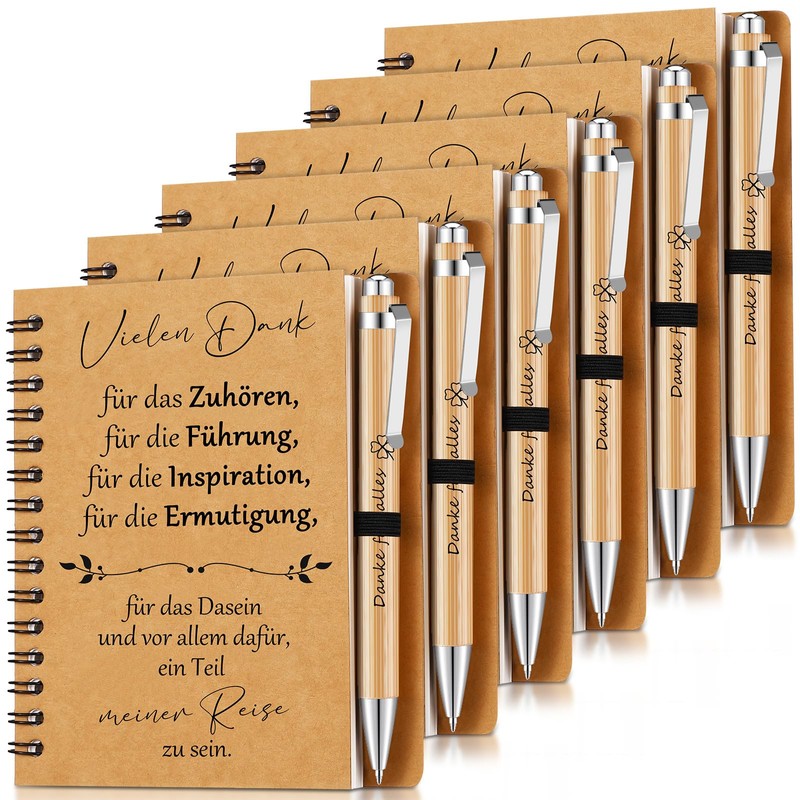 Vielen Dank
für das Zuhören,
für die Führung,
für die Inspiration,
für die Ermutigung,
für das Dasein
und vor allem dafür,
ein Teil
meiner Reise
zu sein.
Danke alles
Danke alles
Danke alles
Danke alles
Danke alles
Danke alles